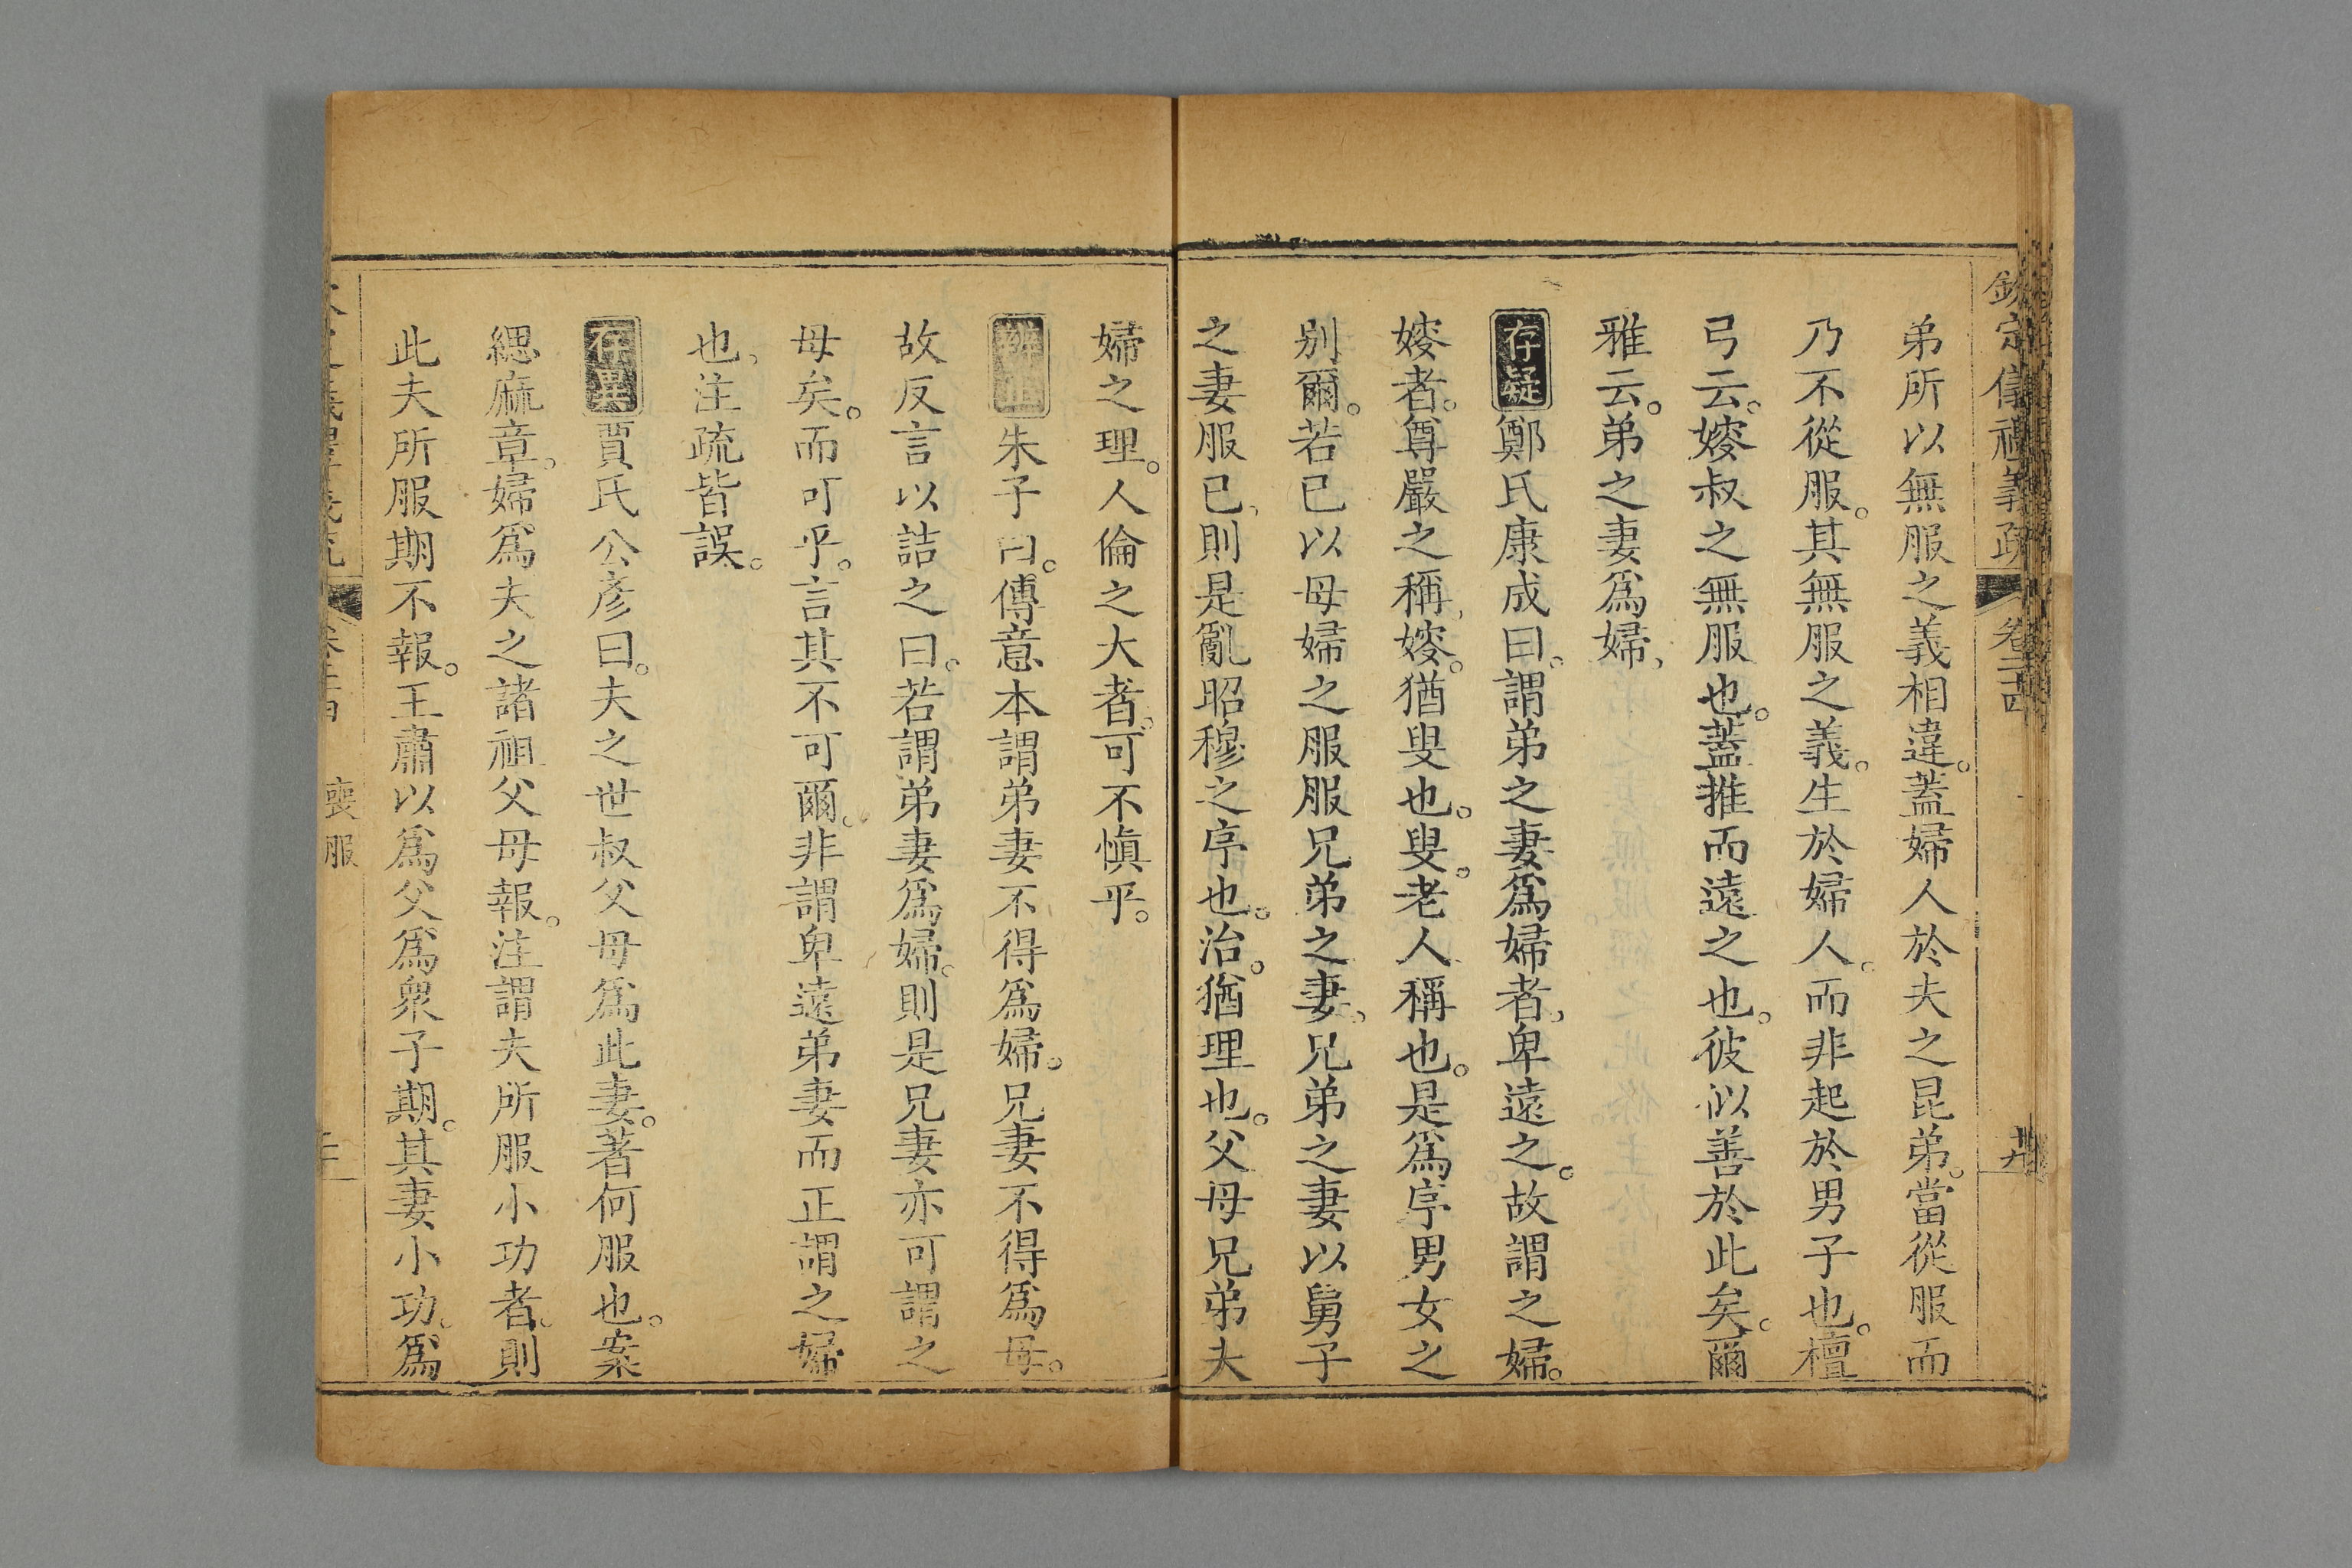 欽定儀禮義疏 卷二十四 廿九
弟所以無服之義相違。蓋婦人於夫之昆弟。當從服而
乃不從服。其無服之義。生於婦人。而非起於男子也。檀
弓云。嫂叔之無服也。蓋推而遠之也。彼似善於此矣。爾
雅云。弟之妻爲婦、
存疑鄭氏康成曰。謂弟之妻爲婦者、卑遠之。故謂之婦。
嫂者。尊嚴之稱、嫂。猶叟也。叟。老人稱也。是爲序男女之
別爾。若已以母婦之服服兄弟之妻、兄弟之妻以舅子
之妻服已、則是亂昭穆之序也。治。猶理也。父母兄弟夫
婦之理。人倫之大者。可不愼乎。
辨正朱子曰。傳意本謂弟妻不得爲婦。兄妻不得爲母。
故反言以詰之曰。若謂弟妻爲婦。則是兄妻亦可謂之
母矣。而可乎。言其不可爾。非謂卑遠弟妻而正謂之婦
也、注疏皆誤。
存異賈氏公彥曰。夫之世叔父母爲此妻。著何服也。案
緦麻章。婦爲夫之諸祖父母報。注謂夫所服小功者。則
此夫所服期不報。王肅以爲父爲衆子期。其妻小功。爲
喪服